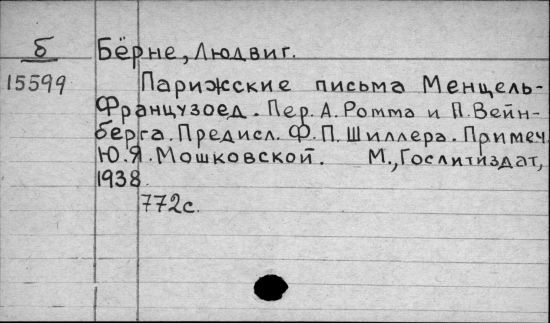 Б Бёрне, Людвиг.
15599 Парижские письма Менцель-
Французоед. Пер. А. Ромма и П. Вейн-
берга. Предисл. Ф. П. Шиллера. Примеч.
Ю. Я. Мошковской. М., Гослитиздат,
1938.
772с.